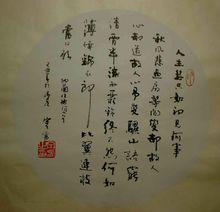 人生若只如初見何事
秋風悲画扇等閒變却故人
心却道故人心易變驪山語罷
清宵半淚雨零鈴終不怨何如
薄倖錦衣郎比翼連枝
當日願